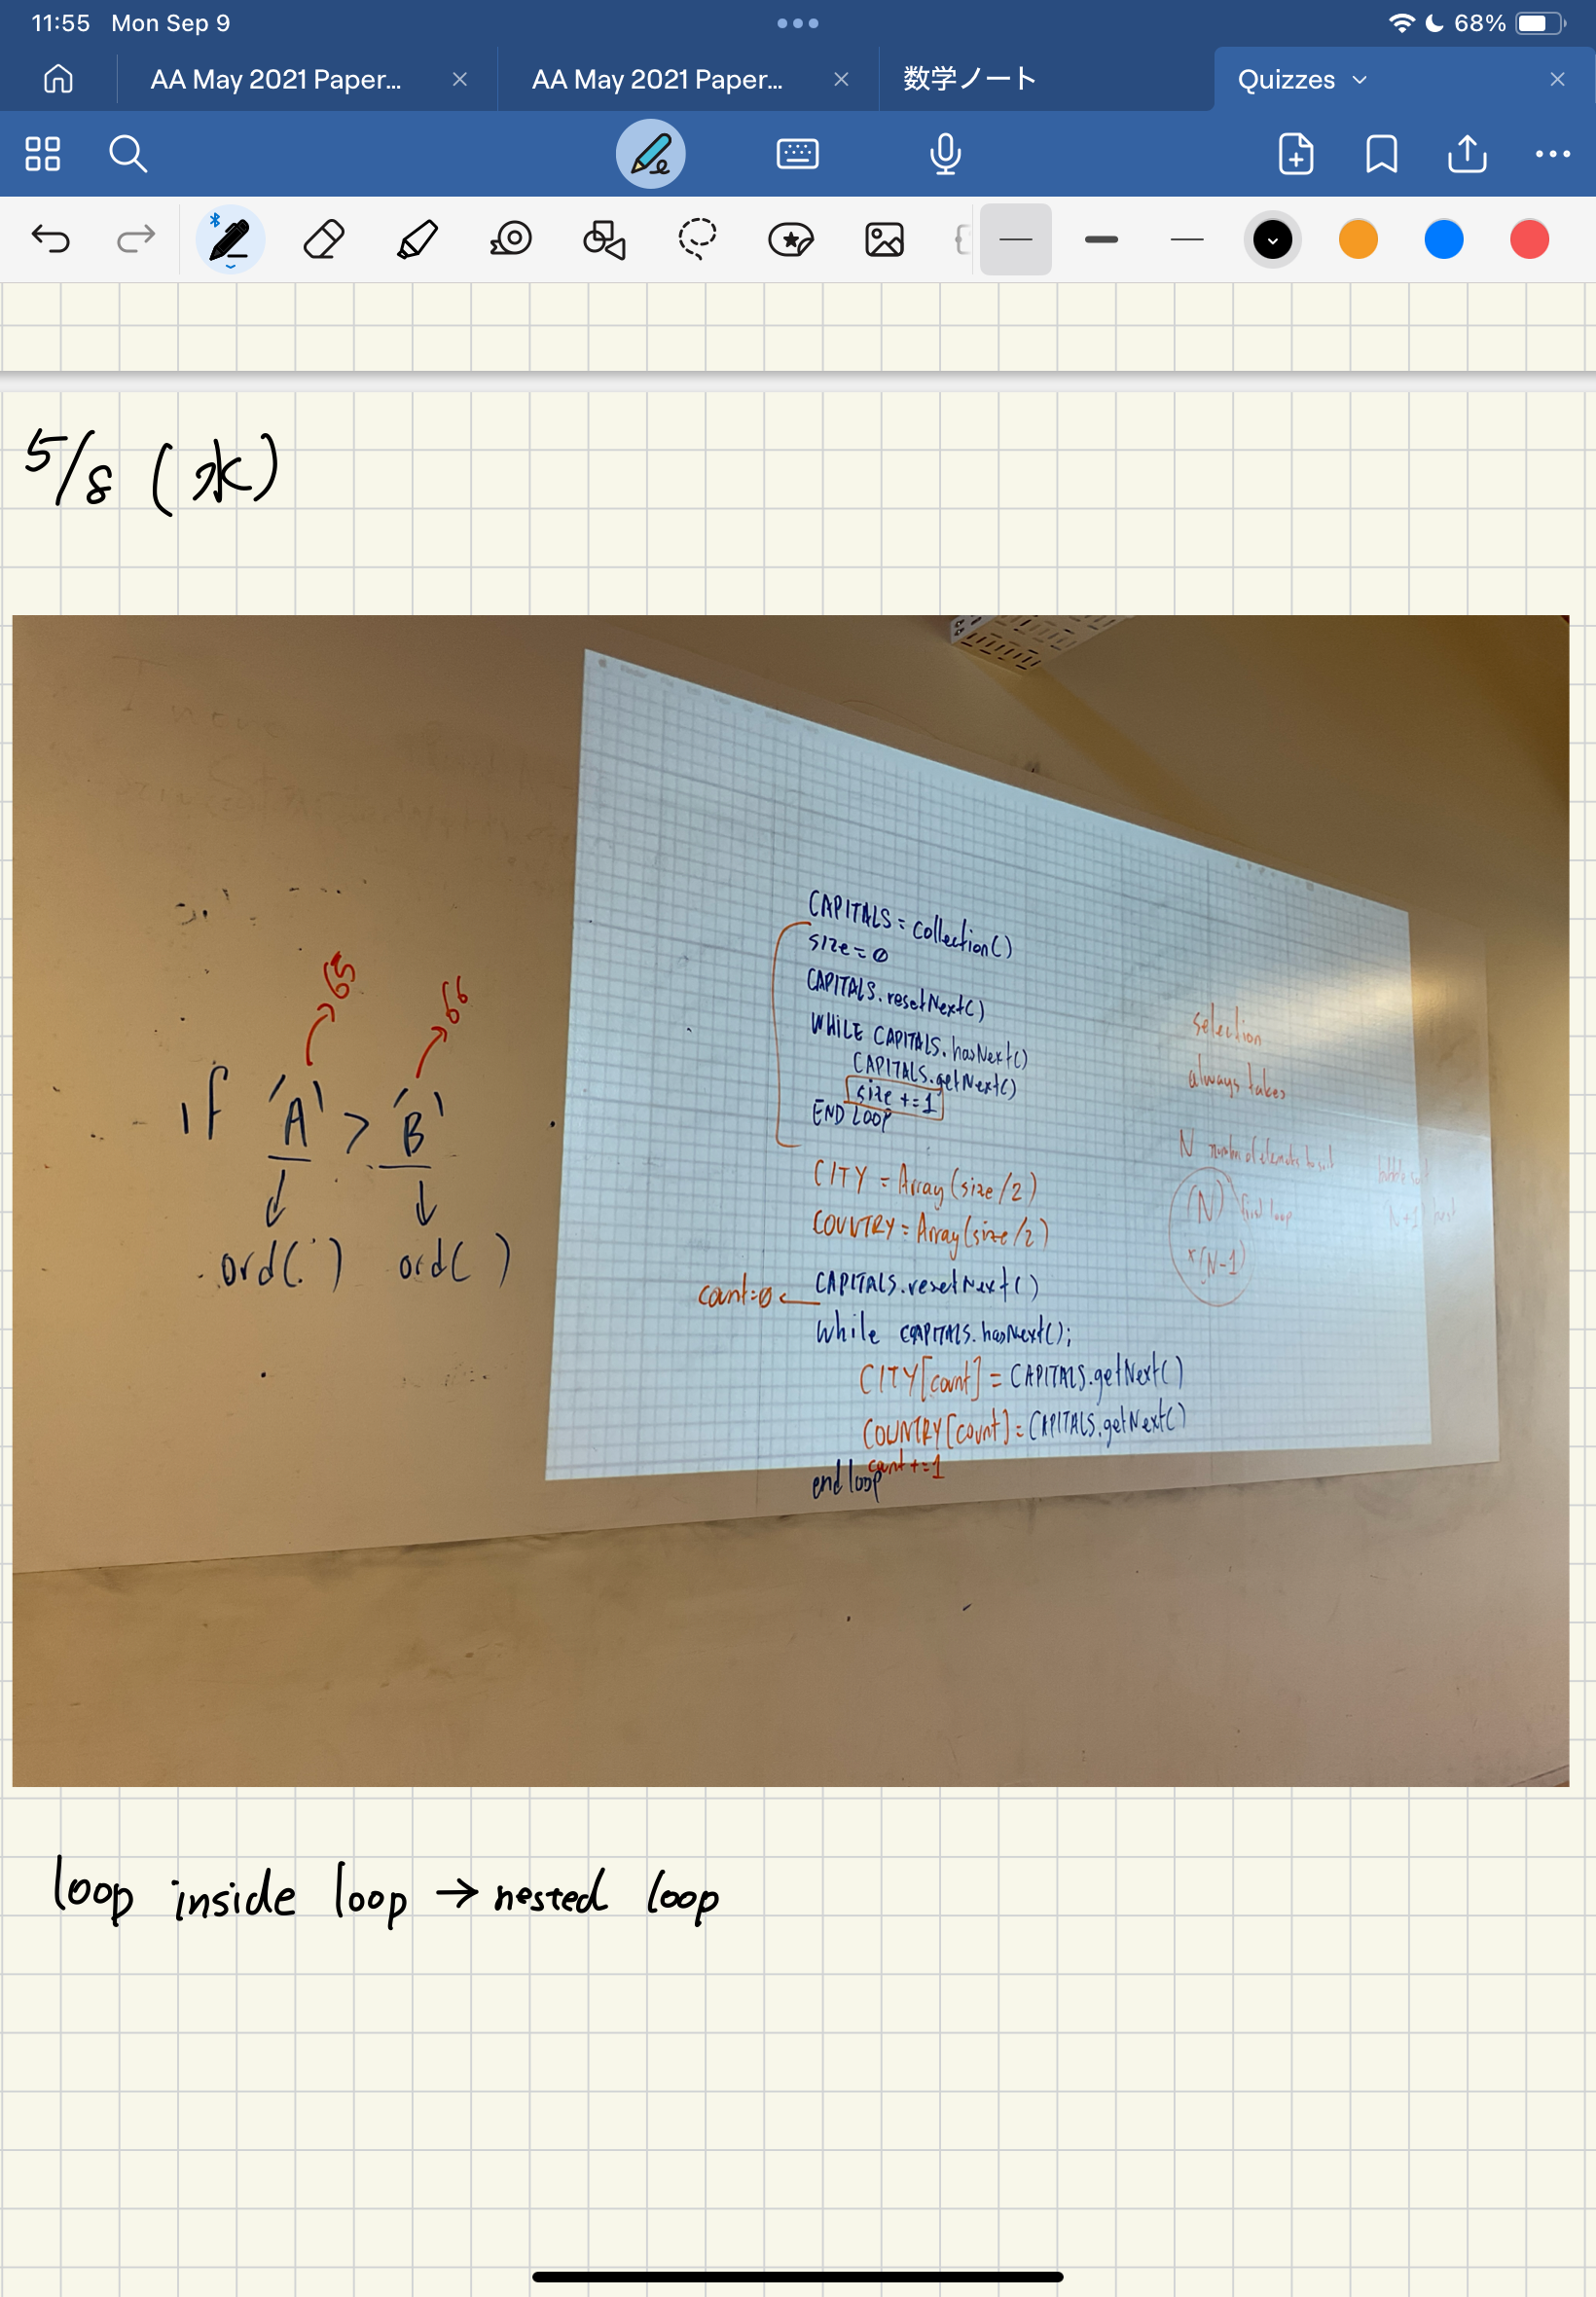 11:55 Mon Sep 9
68%
AA May 2021 Paper...
AA May 2021 Paper...
数学ノート
Quizzes
5/8 (水)
65
66
if 'A' > 'B'
ord( ) ord( )
CAPITALS = collection()
size = 0
CAPITALS.resetNext()
WHILE CAPITALS.hasNext()
CAPITALS.getNext()
size += 1
END LOOP
CITY = Array(size/2)
COUNTRY = Array(size/2)
count=0
CAPITALS.resetNext()
while CAPITALS.hasNext();
CITY[count] = CAPITALS.getNext()
COUNTRY[count] = CAPITALS.getNext()
count += 1
end loop
selection
always takes
N number of elements to sort
(N) loop
*(N-1)
loop inside loop → nested loop